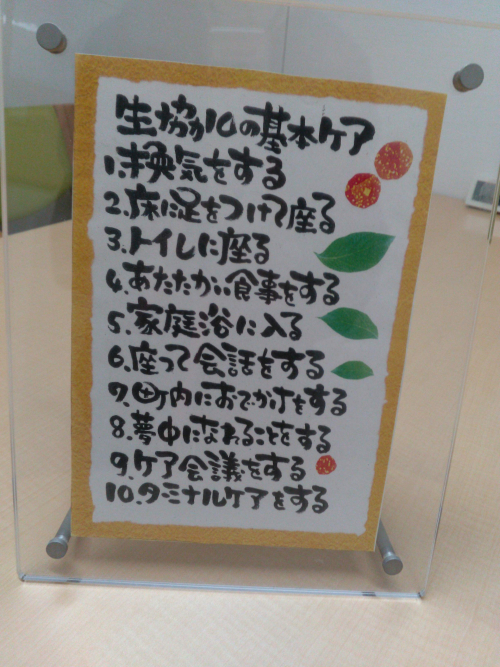 生協10の基本ケア
1.換気をする
2.床に足をつけて座る
3.トイレに座る
4.あたたかい食事をする
5.家庭浴に入る
6.座って会話をする
7.町内におでかけをする
8.夢中になれることをする
9.ケア会議をする
10.ターミナルケアをする